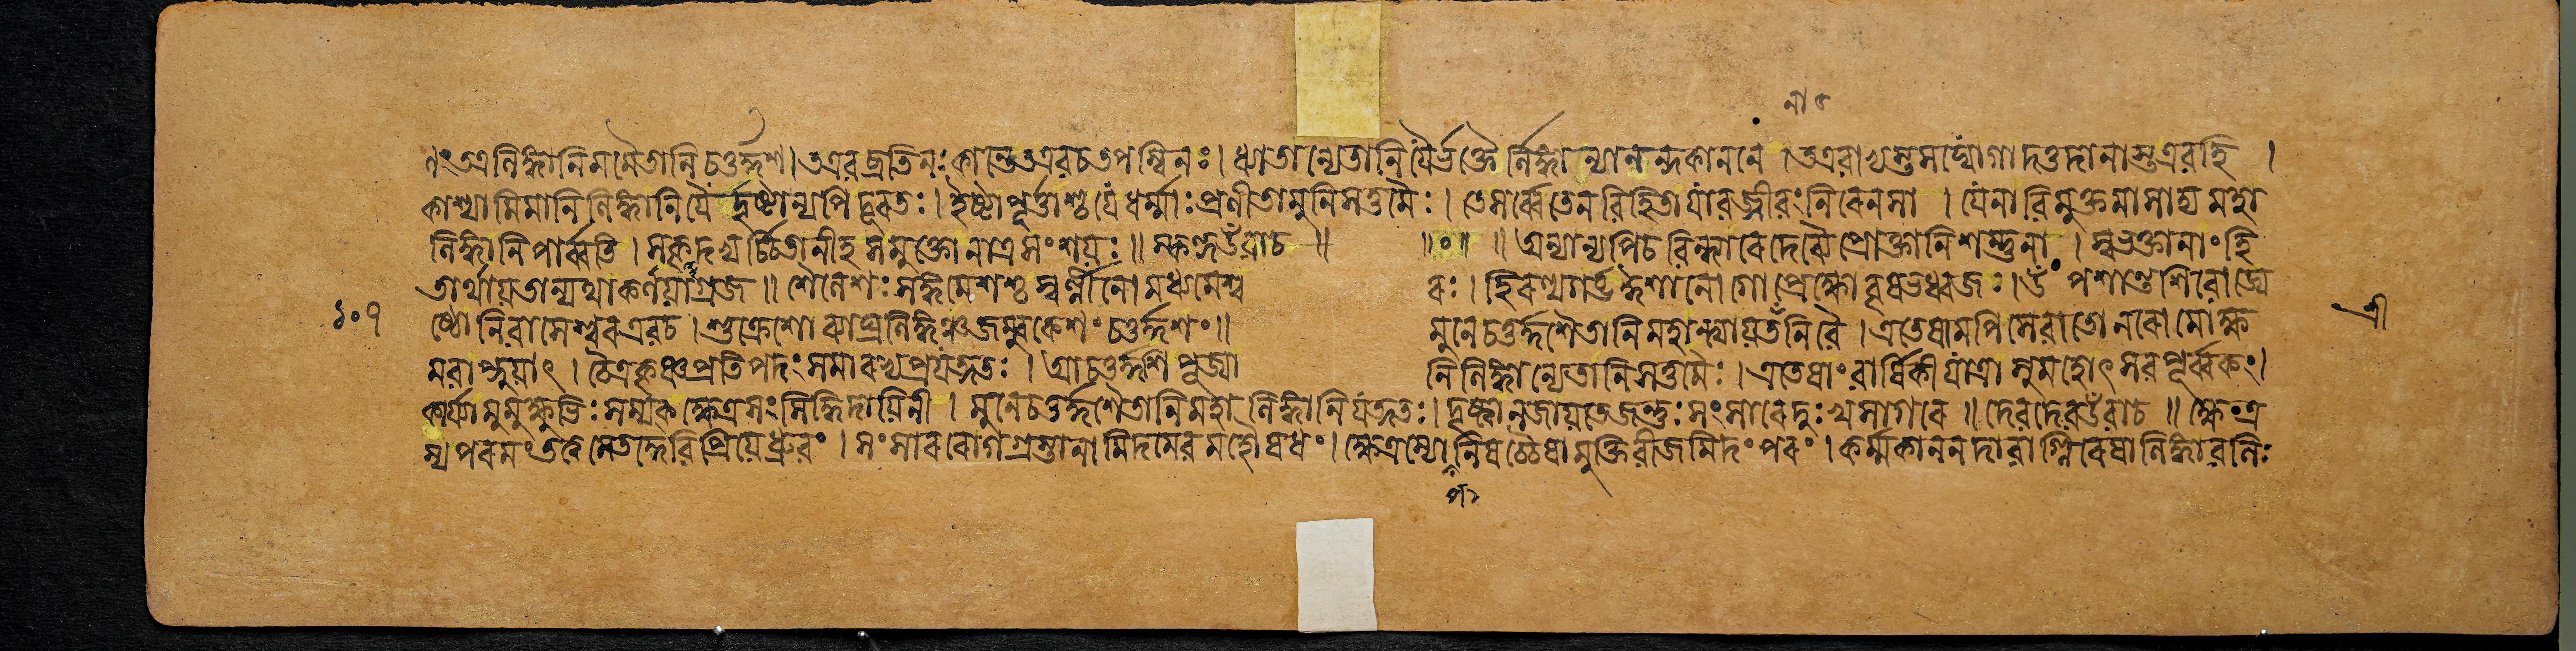 ণং তত্র লিঙ্গানি মমৈতানি চতুর্দ্দশ। তত্রৈব ব্রতিনঃ কান্তে তত্রৈব চ তপস্বিনঃ। ধ্যাতান্যেতানি যৈর্ভক্তৈর্লিঙ্গান্যানন্দকাননে। ত এবাভ্যস্তসদ্যোগা দত্তদানাস্ত এব হি।
কাশ্যামিমানি লিঙ্গানি যৈর্দৃষ্টান্যপি দূরতঃ। ইষ্টাপূর্ত্তাশ্চ যে ধর্ম্মাঃ প্রণীতা মুনিসত্তমৈঃ। তে সর্ব্বে তেন বিহিতা যাবজ্জীবং নিরেনসা। যেনাবিমুক্তমাসাদ্য মহা
লিঙ্গানি পার্ব্বতি। সকৃদভ্যর্চ্চিতানীহ স মুক্তো নাত্র সংশয়ঃ॥ স্কন্দ উবাচ॥ ॥॰॥ ॥ অন্যান্যপি চ বিন্ধ্যারে দেব্যৈ প্রোক্তানি শম্ভুনা। স্বভক্তানাং হি
তার্থায় তান্যথাকর্ণয়াগ্রজ॥ শৈলেশঃ সঙ্গমেশশ্চ স্বর্ল্লীনো মধ্যমেশ্ব রঃ। হিরণ্যগর্ভ ঈশানো গোপ্রেক্ষো বৃষভধ্বজঃ। উপশান্তশিবো জ্যে
১০৭ ষ্ঠো নিবাসেশ্বর এব চ। শুক্রেশো ব্যাঘ্রলিঙ্গঞ্চ জম্বুকেশং চতুর্দ্দশং॥ মুনে চতুর্দ্দশৈতানি মহান্ত্যায়তনানি বৈ। এতেষামপি সেবাতো নরো মোক্ষ শ্রী
মবাপ্নুয়াৎ। চৈত্রকৃষ্ণপ্রতিপদং সমারভ্য প্রযত্নতঃ। আচতুর্দ্দশি পূজ্যা নি লিঙ্গান্যেতানি সত্তমৈঃ। এতেষাং বার্ষিকী যাত্রা সুমহোৎসবপূর্ব্বকং।
কার্য্যা মুমুক্ষুভিঃ সম্যক্ ক্ষেত্রসংসিদ্ধিদায়িনী। মুনে চতুর্দ্দশৈতানি মহালিঙ্গানি যত্নতঃ। দৃষ্ট্বা ন জায়তে জন্তুঃ সংসারে দুঃখসাগরে॥ দেবদেব উবাচ॥ ক্ষেত্র
স্য পরমং তত্ত্বমেতদেব প্রিয়ে ধ্রুবং। সংসাররোগগ্রস্তানামিদমেব মহৌষধং। ক্ষেত্রস্যোনিষচ্চৈষা মুক্তিবীজমিদং পরং। কর্ম্মকাননদাবাগ্নিরেষা লিঙ্গাবলিঃ
প২